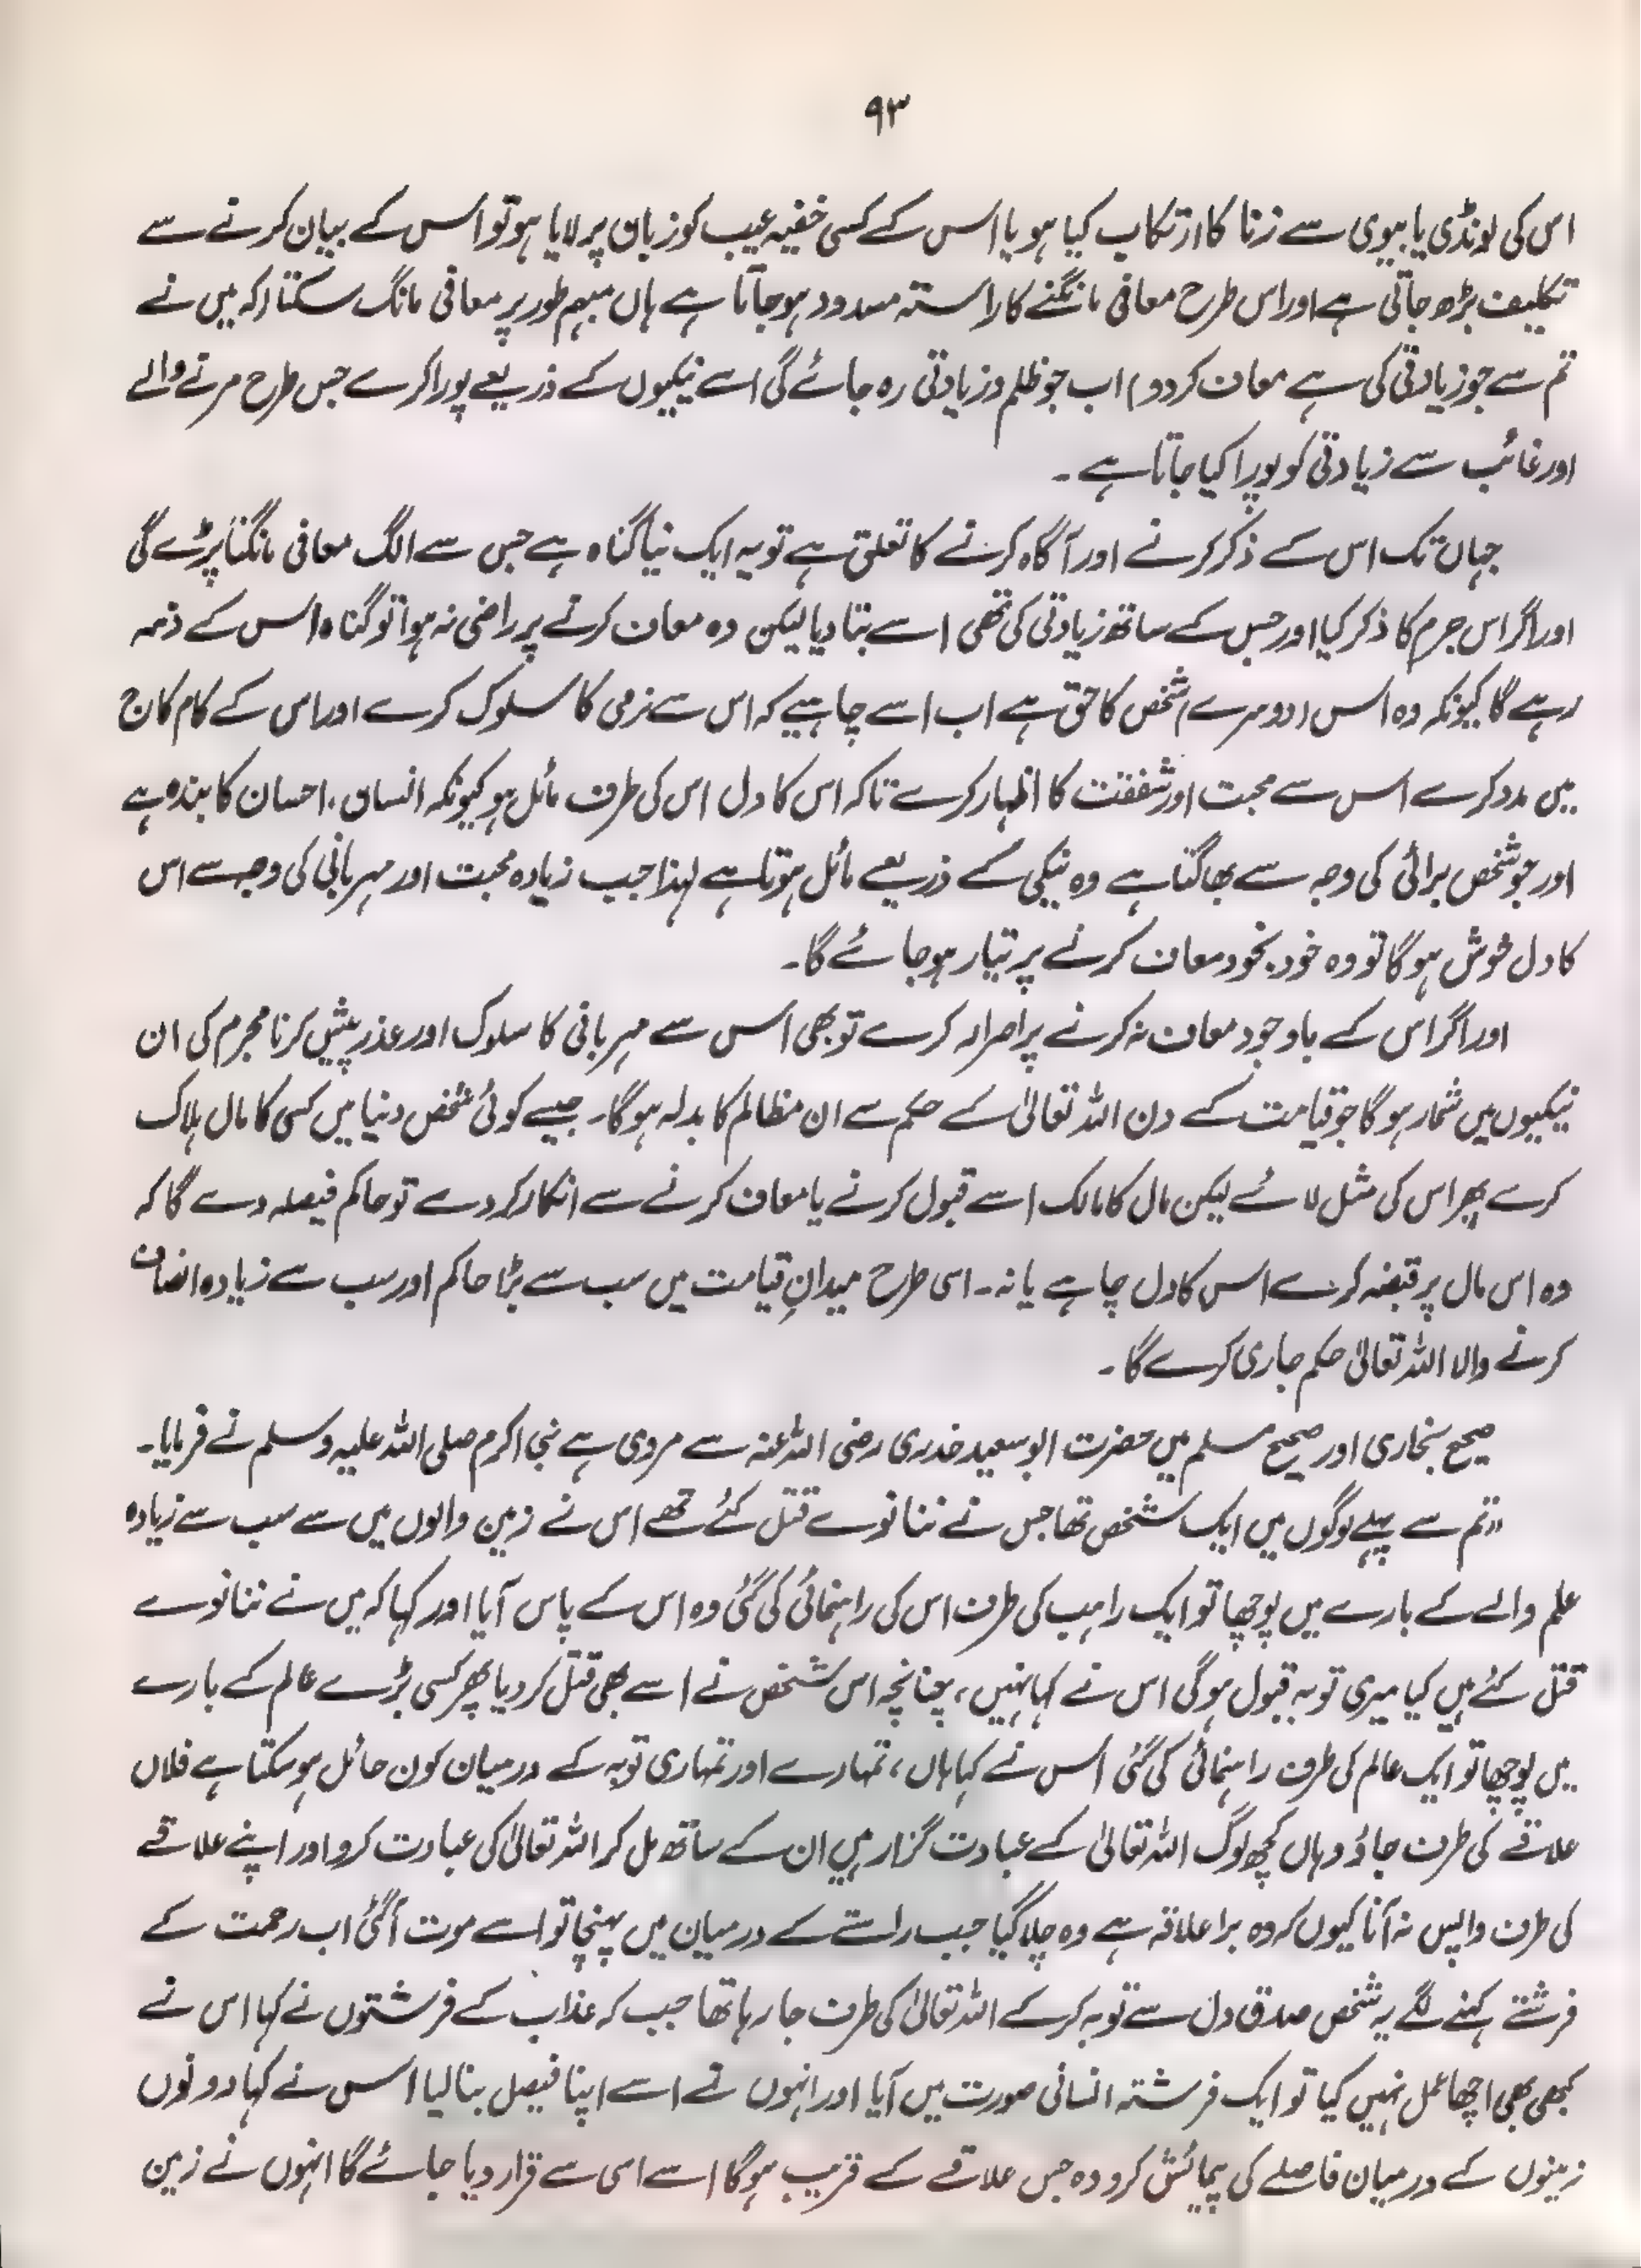 ۹۳
اس کی لونڈی یا بیوی سے زنا کا ارتکاب کیا ہو یا اس کے کسی خفیہ عیب کو زبان پر لایا ہو تو اس کے بیان کرنے سے
تکلیف بڑھ جاتی ہے اور اس طرح معافی مانگنے کا راستہ مسدود ہو جاتا ہے ہاں مبہم طور پر معافی مانگ سکتا (کہ میں نے
تم سے جو زیادتی کی ہے معاف کر دو) اب جو ظلم و زیادتی رہ جائے گی اسے نیکیوں کے ذریعے پورا کرے جس طرح مرنے والے
اور غائب سے زیادتی کو پورا کیا جاتا ہے ۔
جہاں تک اس کے ذکر کرنے اور آگاہ کرنے کا تعلق ہے تو یہ ایک نیا گناہ ہے جس سے الگ معافی مانگنا پڑے گی
اور اگر اس جرم کا ذکر کیا اور جس کے ساتھ زیادتی کی تھی اسے بتا دیا لیکن وہ معاف کرنے پر راضی نہ ہوا تو گناہ اس کے ذمہ
رہے گا کیونکہ وہ اس (دوسرے) شخص کا حق ہے اب اسے چاہیے کہ اس سے نرمی کا سلوک کرے اور اس کے کام کاج
میں مدد کرے اس سے محبت اور شفقت کا اظہار کرے تاکہ اس کا دل اس کی طرف مائل ہو کیونکہ انسان، احسان کا بندہ ہے
اور جو شخص برائی کی وجہ سے بھاگتا ہے وہ نیکی کے ذریعے مائل ہوتا ہے لہذا جب زیادہ محبت اور مہربانی کی وجہ سے اس
کا دل خوش ہو گا تو وہ خود بخود معاف کرنے پر تیار ہو جائے گا۔
اور اگر اس کے باوجود معاف نہ کرنے پر اصرار کرے تو بھی اس سے مہربانی کا سلوک اور عذر پیش کرنا مجرم کی ان
نیکیوں میں شمار ہو گا جو قیامت کے دن اللہ تعالیٰ کے حکم سے ان مظالم کا بدلہ ہو گا۔ جیسے کوئی شخص دنیا میں کسی کا مال ہلاک
کرے پھر اس کی مثل لائے لیکن مال کا مالک اسے قبول کرنے یا معاف کرنے سے انکار کر دے تو حاکم فیصلہ دے گا کہ
وہ اس مال پر قبضہ کرے اس کا دل چاہے یا نہ۔ اسی طرح میدانِ قیامت میں سب سے بڑا حاکم اور سب سے زیادہ انصاف
کرنے والا اللہ تعالیٰ حکم جاری کرے گا ۔
صحیح بخاری اور صحیح مسلم میں حضرت ابو سعید خدری رضی اللہ عنہ سے مروی ہے نبی اکرم صلی اللہ علیہ وسلم نے فرمایا۔
"تم سے پہلے لوگوں میں ایک شخص تھا جس نے ننانوے قتل کئے تھے اس نے زمین والوں میں سے سب سے زیادہ
علم والے کے بارے میں پوچھا تو ایک راہب کی طرف اس کی راہنمائی کی گئی وہ اس کے پاس آیا اور کہا کہ میں نے ننانوے
قتل کئے ہیں کیا میری توبہ قبول ہو گی اس نے کہا نہیں، چنانچہ اس شخص نے اسے بھی قتل کر دیا پھر کسی بڑے عالم کے بارے
میں پوچھا تو ایک عالم کی طرف راہنمائی کی گئی اس نے کہا ہاں، تمہارے اور تمہاری توبہ کے درمیان کون حائل ہو سکتا ہے فلاں
علاقے کی طرف جاؤ وہاں کچھ لوگ اللہ تعالیٰ کے عبادت گزار ہیں ان کے ساتھ مل کر اللہ تعالیٰ کی عبادت کرو اور اپنے علاقے
کی طرف واپس نہ آنا کیوں کہ وہ برا علاقہ ہے وہ چلا گیا جب راستے کے درمیان میں پہنچا تو اسے موت آ گئی اب رحمت کے
فرشتے کہنے لگے یہ شخص صدق دل سے توبہ کر کے اللہ تعالیٰ کی طرف جا رہا تھا جب کہ عذاب کے فرشتوں نے کہا اس نے
کبھی بھی اچھا عمل نہیں کیا تو ایک فرشتہ انسانی صورت میں آیا اور انہوں نے اسے اپنا فیصل بنا لیا اس نے کہا دونوں
زمینوں کے درمیان فاصلے کی پیمائش کرو وہ جس علاقے کے قریب ہو گا اسے اسی سے قرار دیا جائے گا انہوں نے زمین